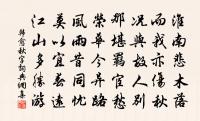 淮南悲木落
而我亦傷秋
況與故人別
那堪羈宦愁
榮華今異路
風雨昔同憂
莫以宜春遠
江山多勝游
韓愈秋字詞典網集